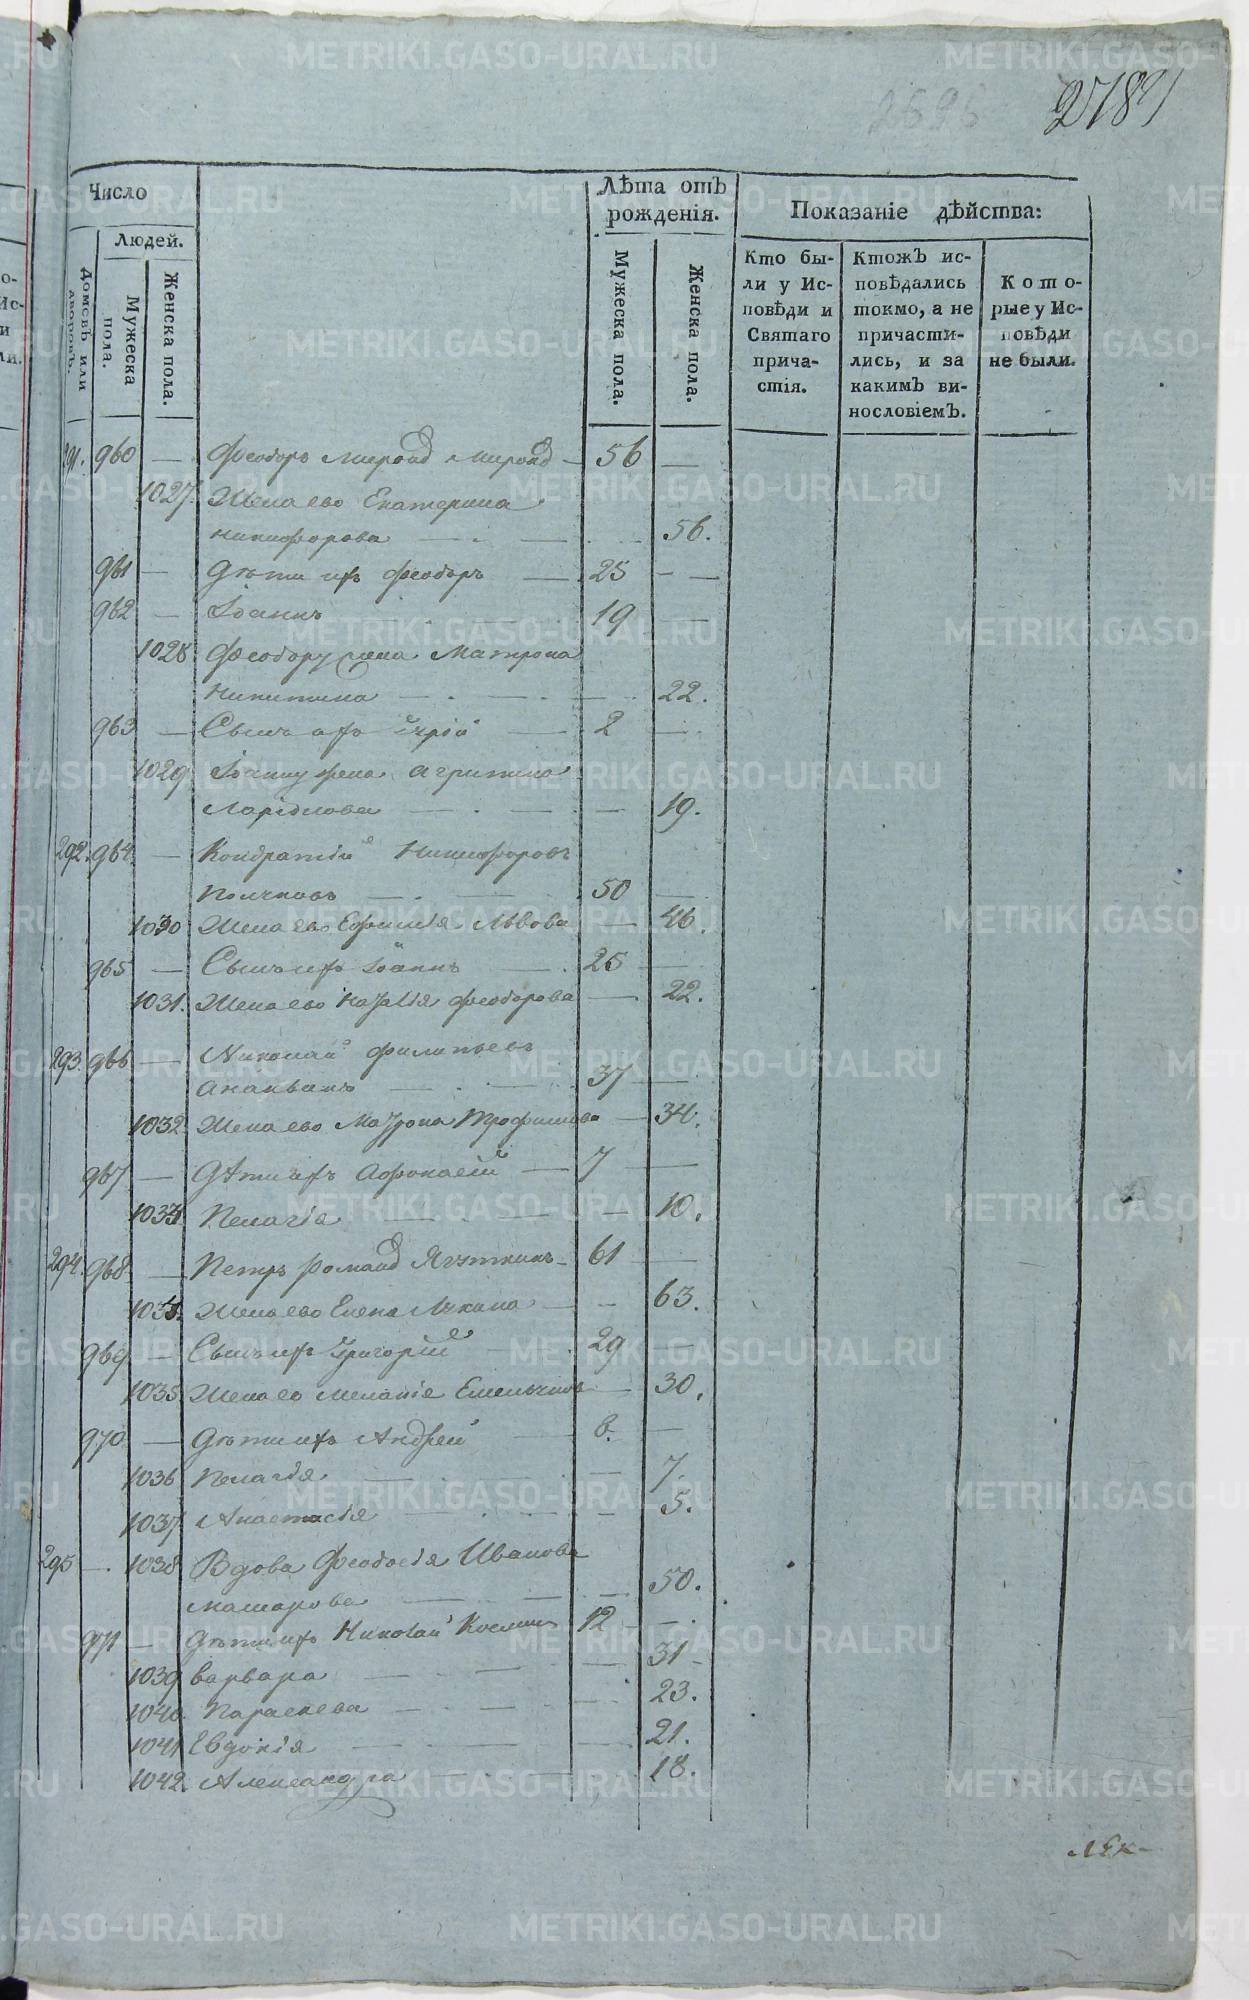 2696
Число
Людей.
Домовъ или дворовъ.
Мужеска пола.
Женска пола.
Лѣта отъ рожденія.
Мужеска пола.
Женска пола.
Показаніе дѣйства:
Кто бы-
ли у Ис-
повѣди и
Святаго
прича-
стія.
Ктожъ ис-
повѣдались
токмо, а не
причасти-
лись, и за
какимъ ви-
нословіемъ.
Кото-
рые у Ис-
повѣди
не были.
291. 960 — Феодоръ Миронд Миронд — 56 —
1027. Жена его Екатерина
Никифорова — 56.
961 — Дѣти ихъ Феодоръ — 25 —
962 — Іоаннъ — 19 —
1028 Феодору жена Матрона
Никитина — 22.
963 — Сынъ ихъ — 2 —
1029 Іоанну жена Агрипина
Ларіонова — 19.
292. 964 — Кондратій Никифоровъ
50 —
1030 Жена его Ефимія Львова — 46.
965 — Сынъ ихъ Іоаннъ — 25 —
1031. Жена его Наталія Феодорова — 22.
293. 966 — Николай Филипьевъ
Ананьинъ — 37 —
1032. Жена его Матрона Трофимова — 34.
967 — Дѣти ихъ Афонасій — 7 —
1033 Пелагія — 10.
294. 968 — Петръ Романд — 61 —
1034. Жена его Елена Лукина — 63.
969 — Сынъ ихъ Григорій — 29 —
1035. Жена ево Меланіе — 30.
970 — Дѣти ихъ Андрей — 8. —
1036 Пелагія — 7.
1037 Анастасія — 5.
295 — 1038 Вдова Феодосія Иванова
Машарова — 50.
971 — Дѣти ихъ Николай Космин 12 —
1039 Варвара — 31
1040. Параскева — 23.
1041 Евдокія — 21.
1042. Александра — 18.
METRIKI.GASO-URAL.RU